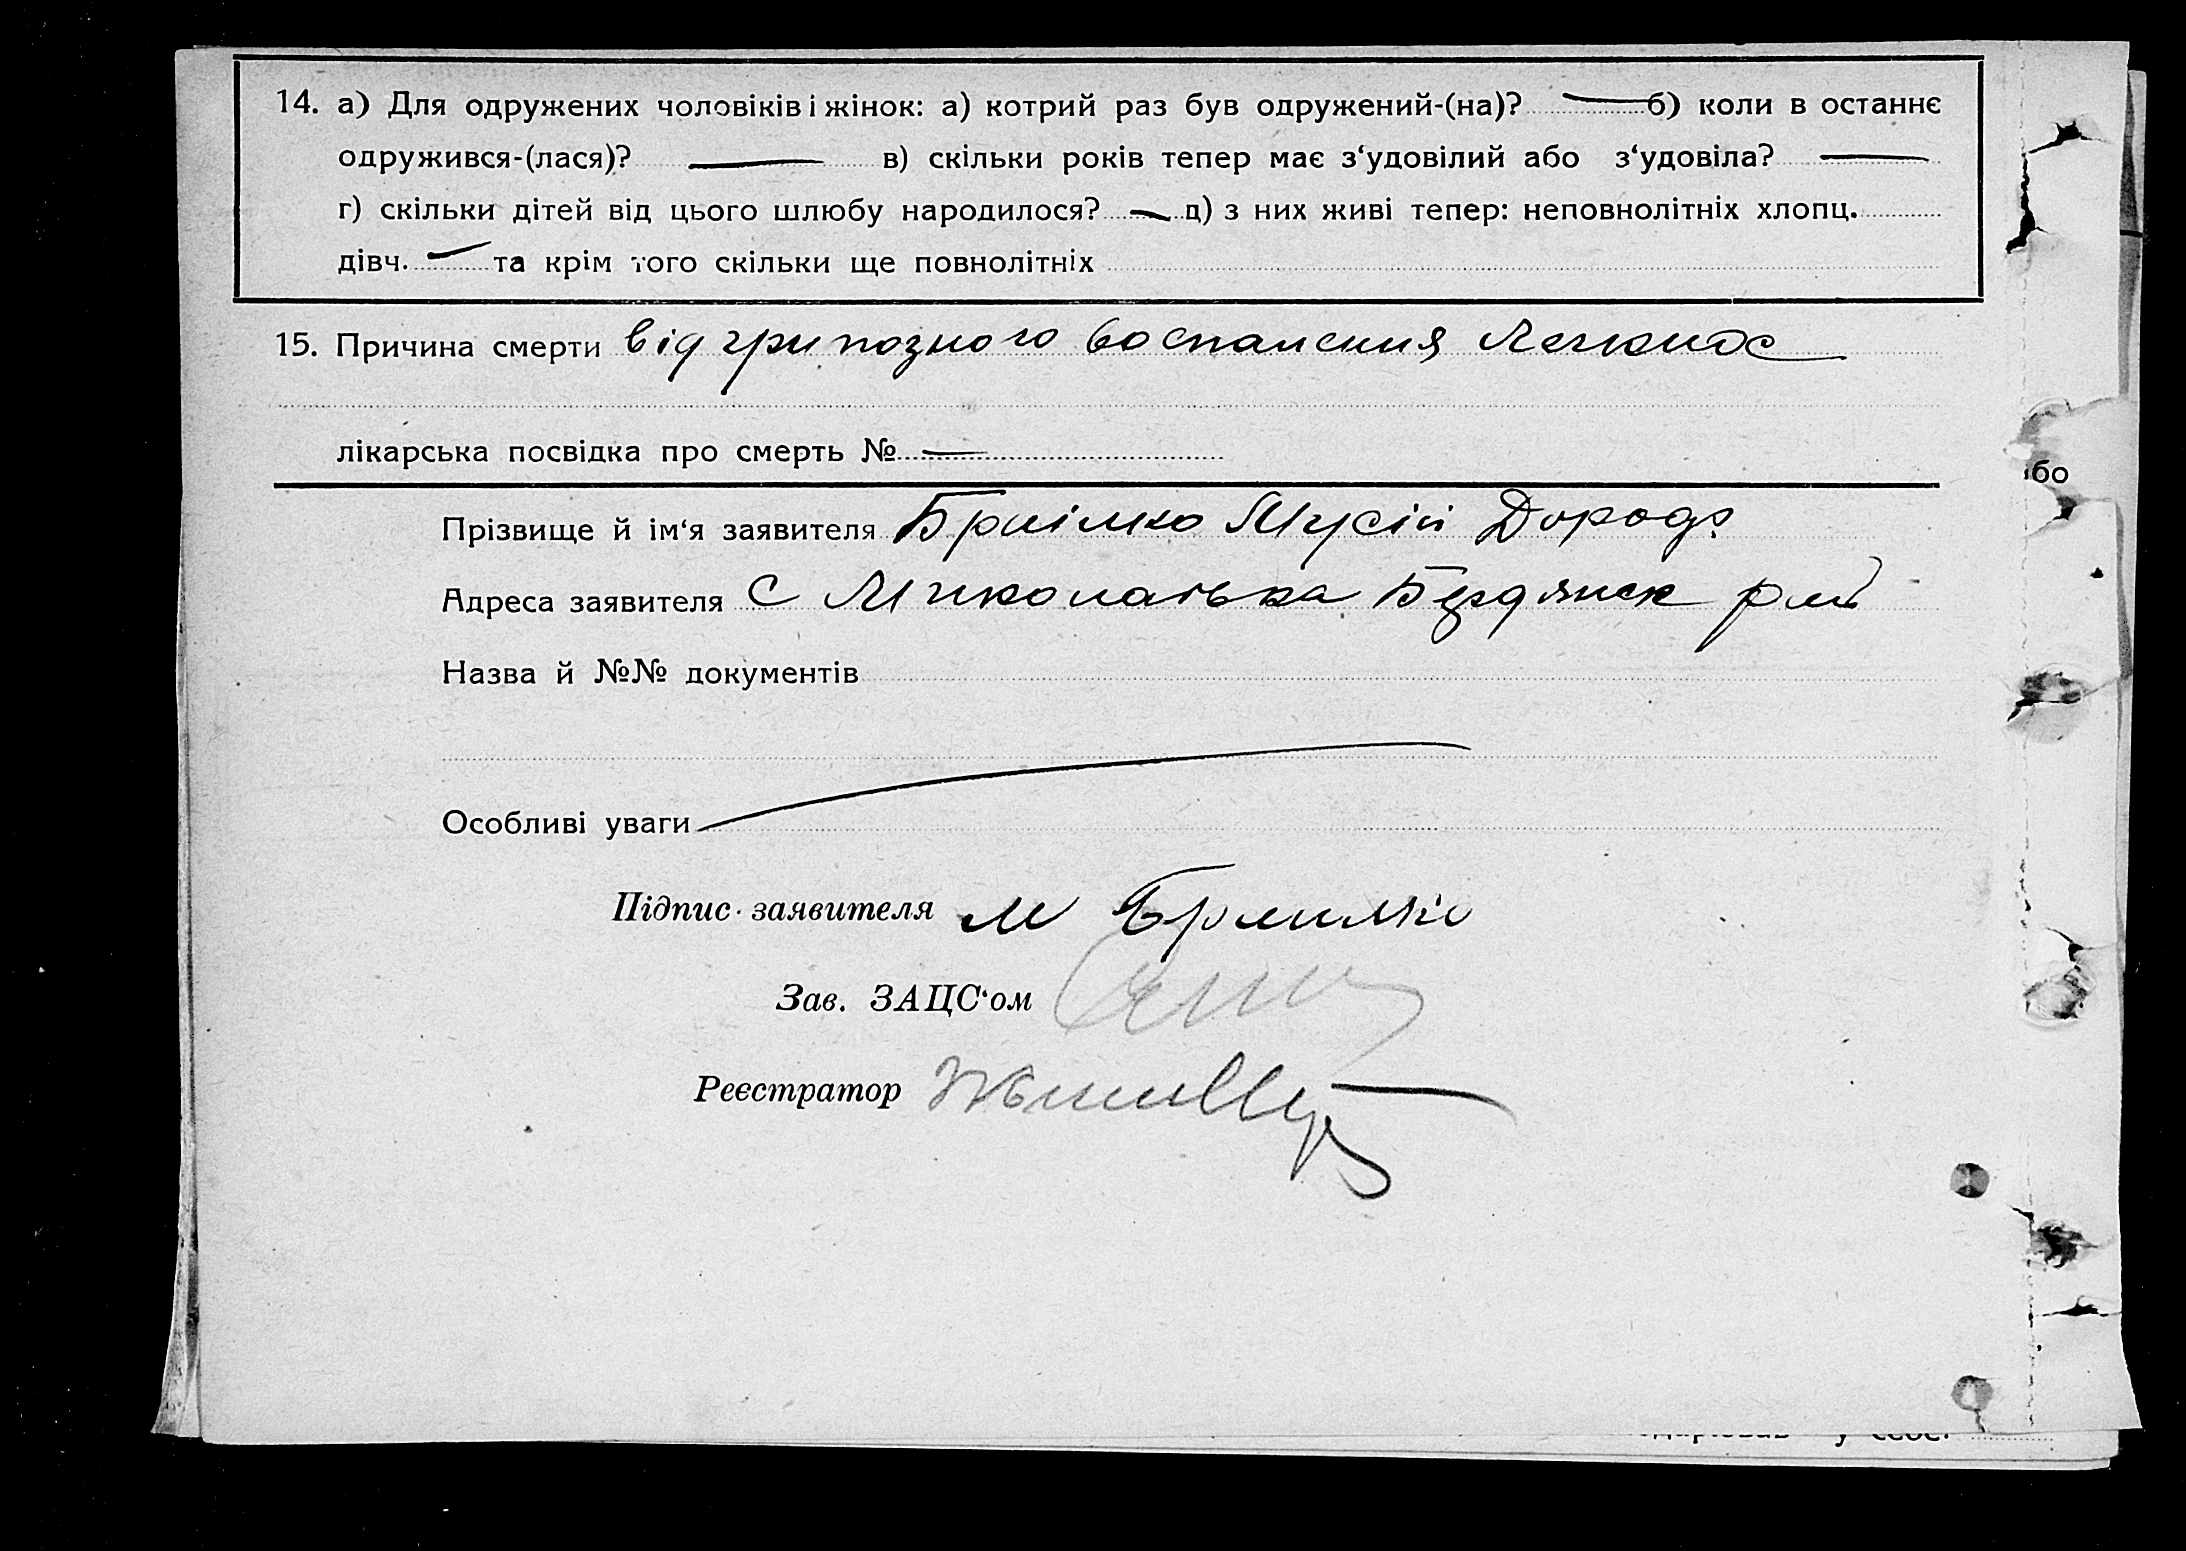 14. а) Для одружених чоловіків і жінок: а) котрий раз був одружений-(на)? — б) коли в останнє
одружився-(лася)? — в) скільки років тепер має з‘удовілий або з‘удовіла? —
г) скільки дітей від цього шлюбу народилося? — д) з них живі тепер: неповнолітніх хлопц.
дівч. — та крім того скільки ще повнолітніх
15. Причина смерти від грипозного воспаления Легких
лікарська посвідка про смерть № —
бо
Прізвище й ім‘я заявителя Мусій
Адреса заявителя С Миколаївка Бердянск
Назва й №№ документів
Особливі уваги —
Підпис заявителя М
Зав. ЗАЦС‘ом
Реєстратор
у себе.